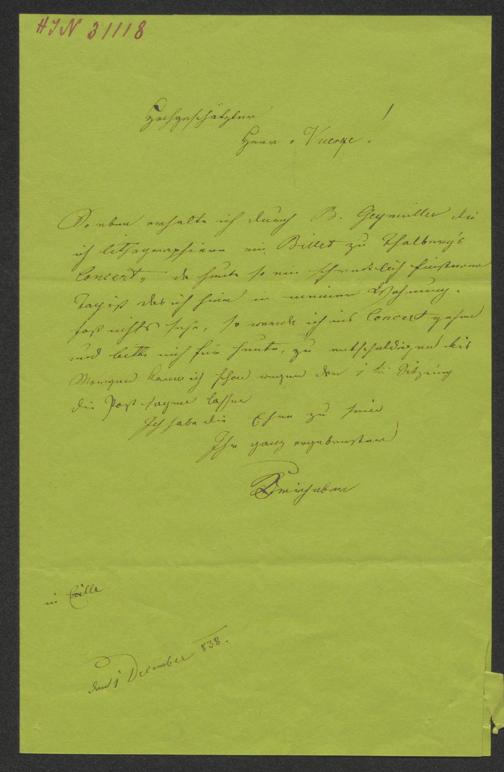 HIN 31118
Hochgeschätzter !
Herr v. Vuerge.
Soeben erhalte ich durch B. Geymüller die
ich lithographiere ein Billet zu Thalberg's
Concert, da heute so ein schrecklich finsterer
Tag ist daß ich hier in meiner Wohnung
fast nichts sehe, so werde ich ins Concert gehen
und bitte mich für heute zu entschuldigen bis
Morgen kann ich schon wegen der Sitzung
die Post sagen lassen
Ich habe die Ehre zu sein
Ihr ganz ergebenster
Kriehuber
in Eille
den 1 December 838.